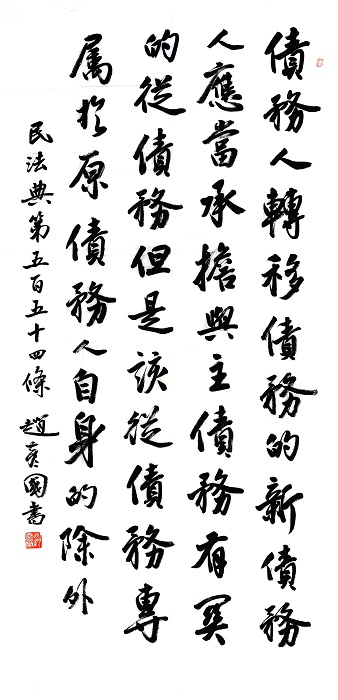 債務人轉移債務的新債務
人應當承擔與主債務有関
的從債務但是該從債務專
属於原債務人自身的除外
民法典第五百五十四條 趙 國書